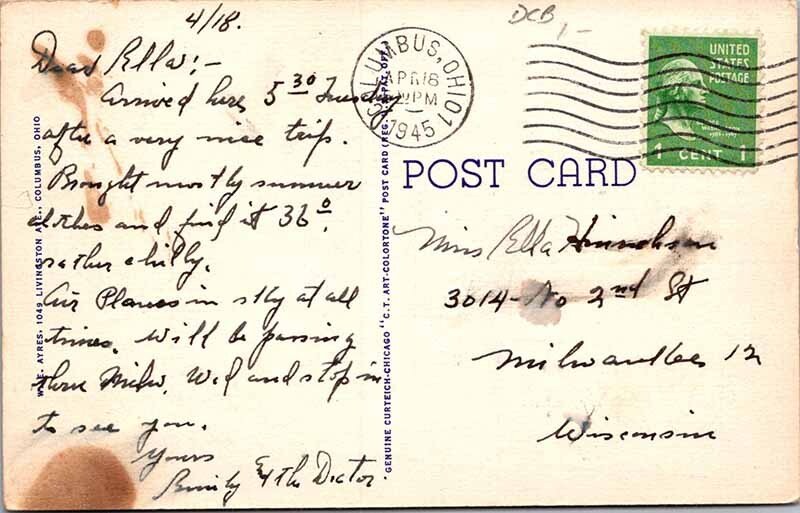 4/18.
DCB
Dear Ella:-
Arrived here 5 30 Tuesday
after a very nice trip.
Brought mostly summer
clothes and find it 36°.
rather chilly.
Air Planes in sky at all
times. Will be passing
thru Milw. Wed and stop in
to see you.
Yours
& the Doctor.
W. E. AYRES, 1049 LIVINGSTON AVE., COLUMBUS, OHIO
GENUINE CURTEICH-CHICAGO "C.T. ART-COLORTONE" POST CARD (REG. U.S. PAT. OFF.)
COLUMBUS, OHIO 1
APR 18
PM
1945
UNITED
STATES
POSTAGE
1 CENT 1
POST CARD
Miss Ella
3014- No 2nd St
Milwaukee 12
Wisconsin